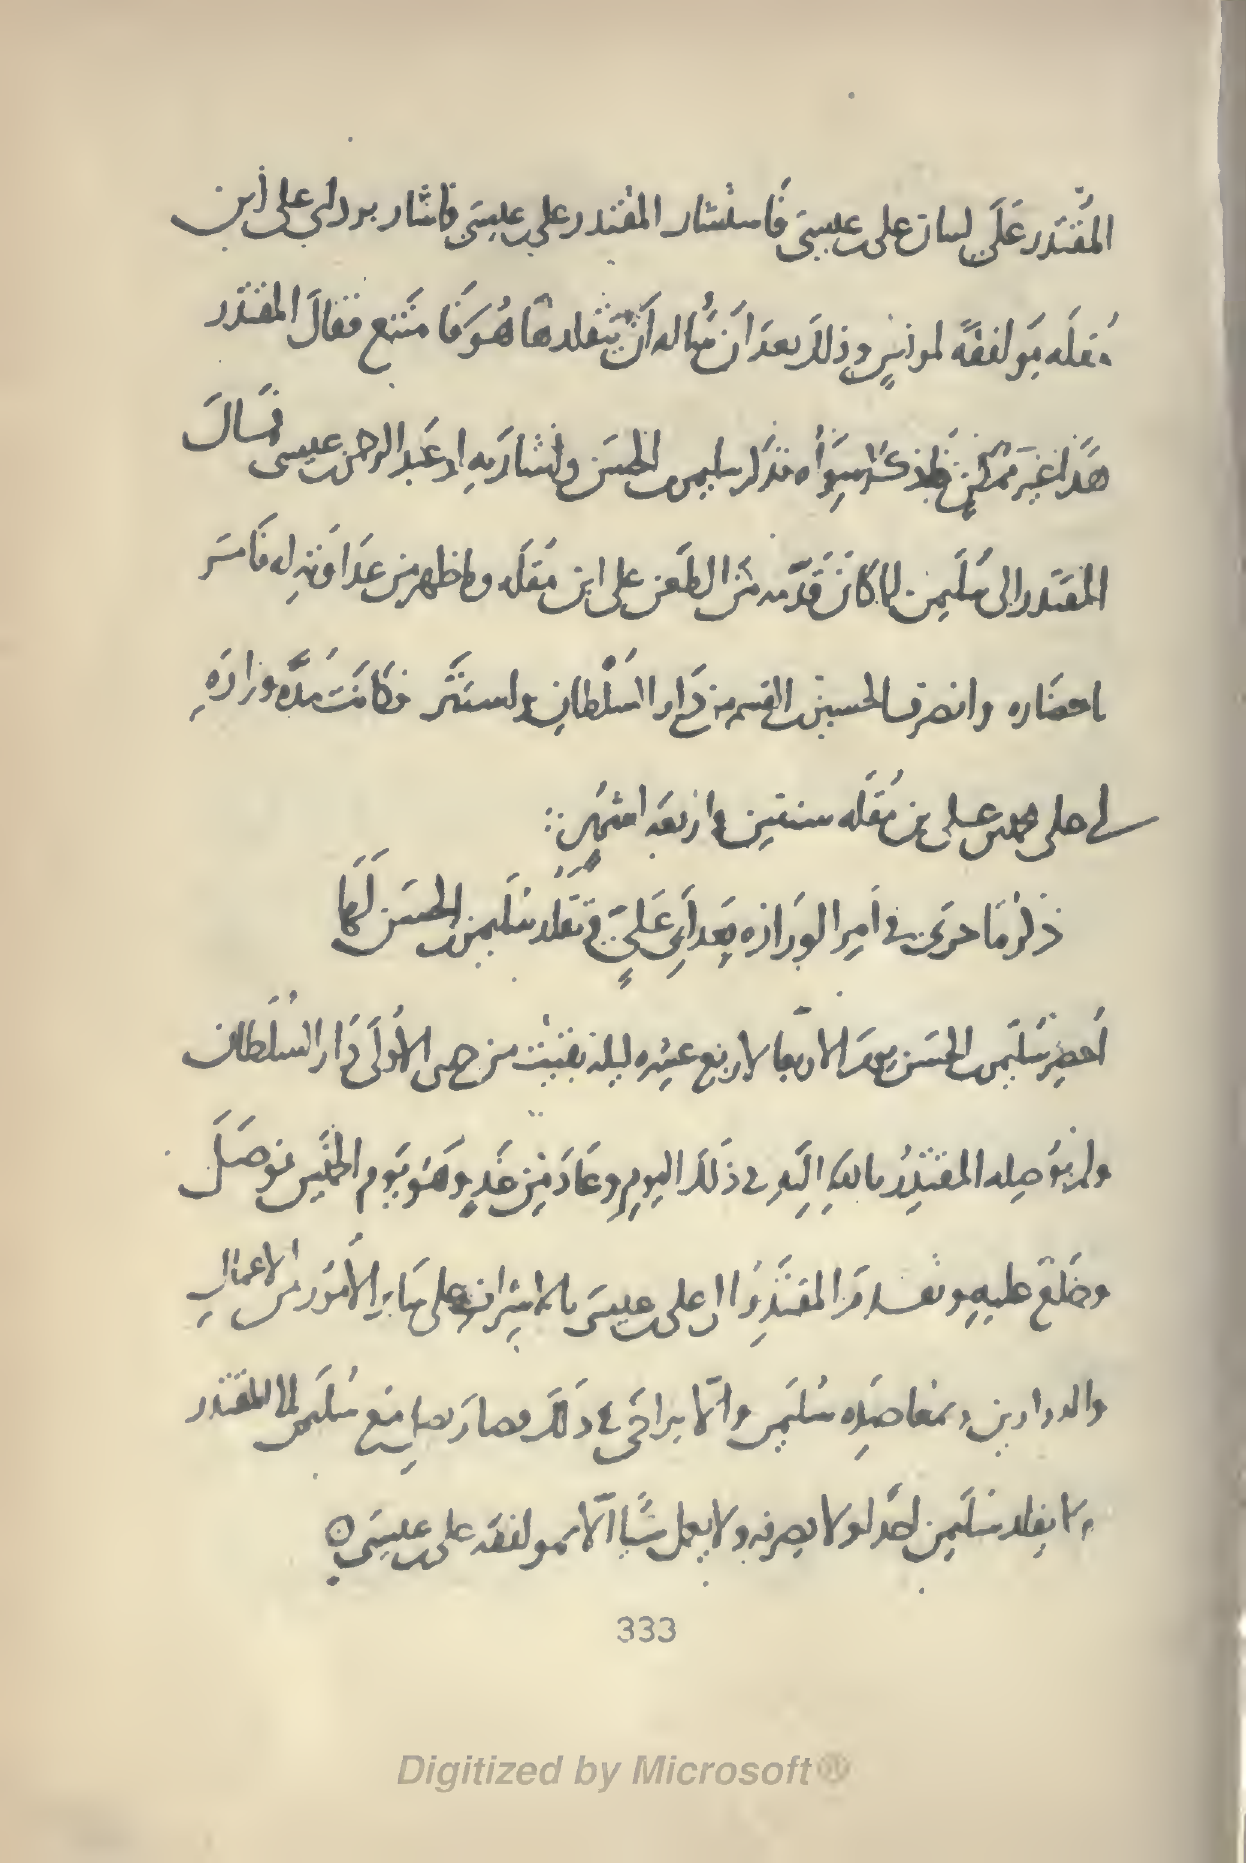 المقتدر على لسان على بن عيسى فاستشار المقتدر على بن عيسى فاشار برد ابى على ابن
مقله موافقة لمونس وذلك بعد ان ساله ان يتقلدها هو فامتنع فقال المقتدر
هذا غير ممكن فاذكر سواه فذكر سليمن بن الحسن واشار به او عبد الرحمن بن عيسى فمال
المقتدر الى سليمن لما كان قدمه من الطعن على ابن مقله وظهر من عداوته له فامر
باحضاره وانصرف الحسين بن القسم من دار السلطان واستتر فكانت مده وزاره
ابى على محمد بن على بن مقله سنتين واربعه اشهر
ذكر ما جرى فى امر الوزاره بعد ابى على فى تقلد سليمن بن الحسن لها
احضر سليمن بن الحسن يوم الاربعا لاربع عشره ليله بقيت من جمدى الاولى دار السلطان
ولم يوصله المقتدر بالله اليه فى ذلك اليوم وعاد من غد وهو يوم الخميس فوصل
وخلع عليه وتقدم المقتدر الى على بن عيسى بالاشراف على ساير الامور من الاعمال
والدواوين وبمعاضده سليمن والا يراخى فى ذلك فصار يصل مع سليمن الى المقتدر
ولا يقلد سليمن احدا ولا يصرفه ولا يعمل شيا الا بموافقه على بن عيسى
333
Digitized by Microsoft®